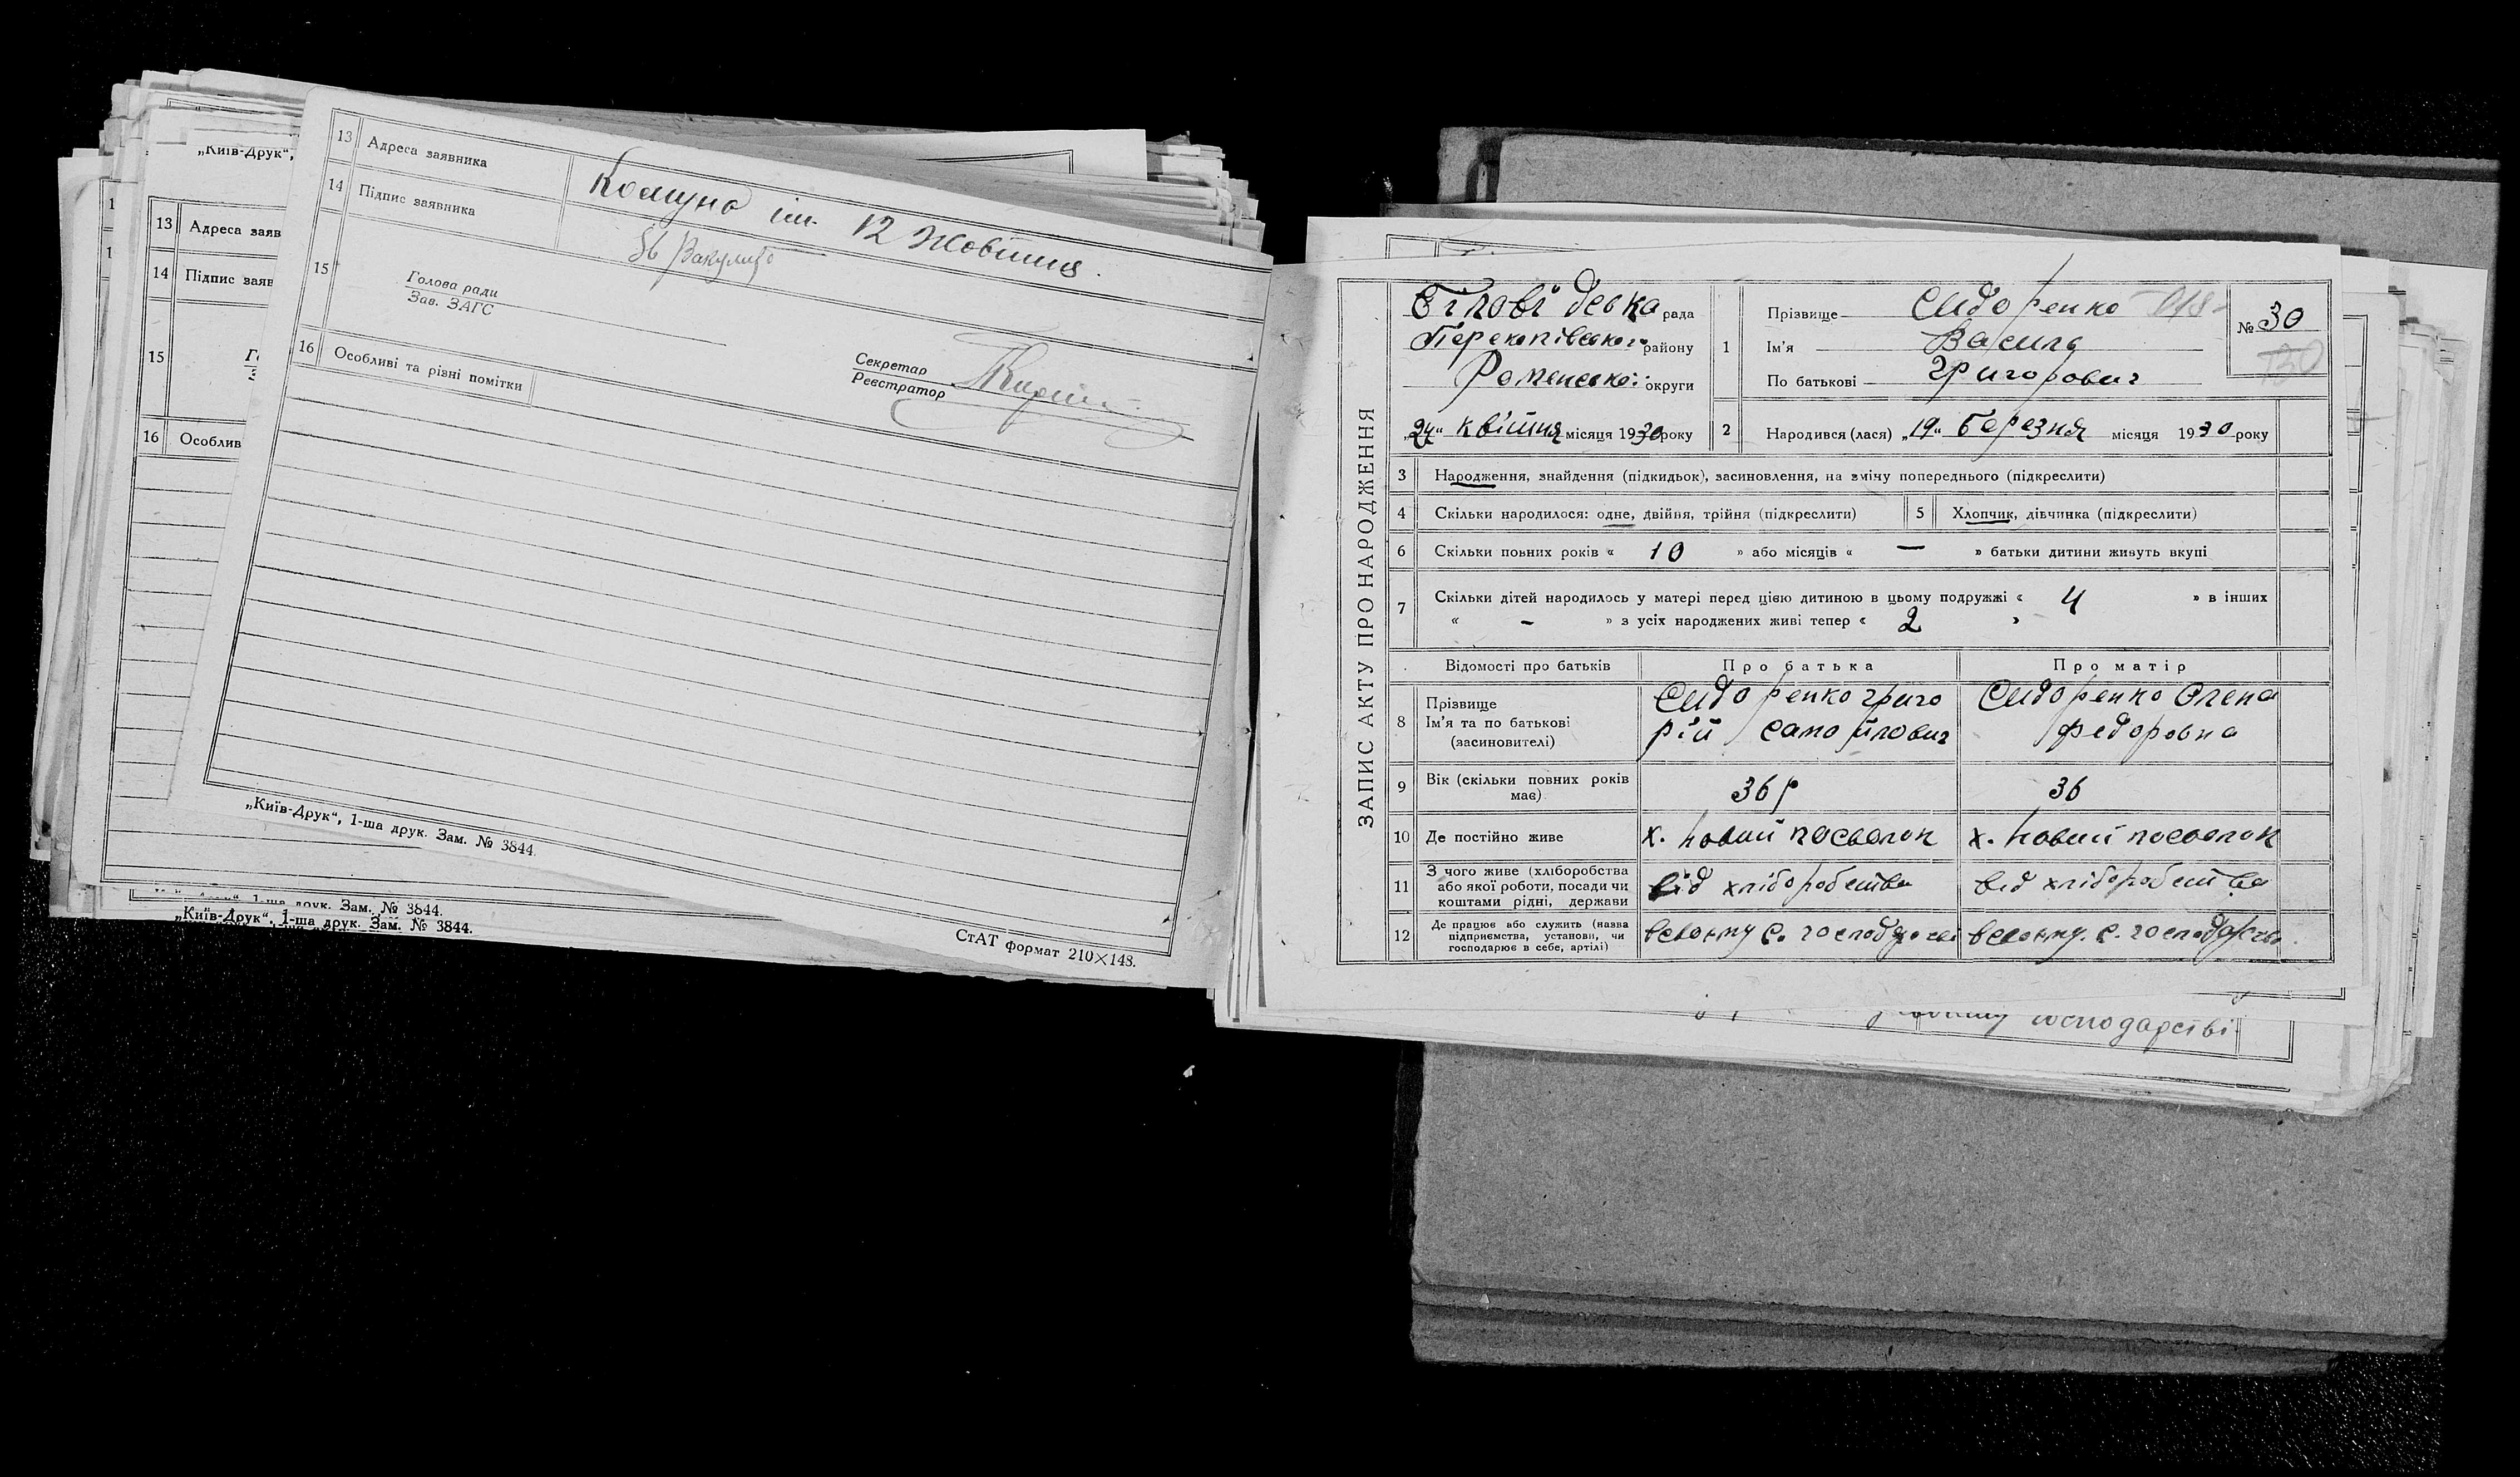 „Київ-Друк“,
13 Адреса заяв
14 Підпис заяв
15
16 Особлив
13 Адреса заявника Комуна ім. 12 Жовтня.
14 Підпис заявника
15
Голова ради
Зав. ЗАГС
Секретар
Реєстратор
16 Особливі та різні помітки
„Київ-Друк“, 1-ша друк. Зам. № 3844.
СтАТ формат 210×148.
1-ша друк. Зам. № 3844.
„Київ-Друк“, 1-ша друк. Зам. № 3844.
ЗАПИС АКТУ ПРО НАРОДЖЕННЯ
Біловідська рада
Перекопівського району
Роменської округи
„24“ квітня місяця 1930 року
1 Прізвище Сидоренко
Ім'я Василь
По батькові Григорович
№ 30
2 Народився (лася) „19“ березня місяця 1930 року
3 Народження, знайдення (підкидьок), засиновлення, на зміну попереднього (підкреслити)
4 Скільки народилося: одне, двійня, трійня (підкреслити) 5 Хлопчик, дівчинка (підкреслити)
6 Скільки повних років « 10 » або місяців « — » батьки дитини живуть вкупі
7 Скільки дітей народилось у матері перед цією дитиною в цьому подружжі « 4 » в інших
« – » з усіх народжених живі тепер « 2 »
Відомості про батьків Про батька Про матір
8 Прізвище
Ім'я та по батькові
(засиновителі)
Сидоренко Григо
рій Самойлович
Сидоренко Олена
Федоровна
9 Вік (скільки повних років
має)
36 р
36
10 Де постійно живе х. Новий посьолок х. Новий посьолок
11 З чого живе (хліборобства
або якої роботи, посади чи
коштами рідні, держави
від хліборобства від хліборобства
12 Де працює або служить (назва
підприємства, установи, чи
господарює в себе, артілі)
всвоєму с. господарстві всвоєму с. господарстві
господарстві